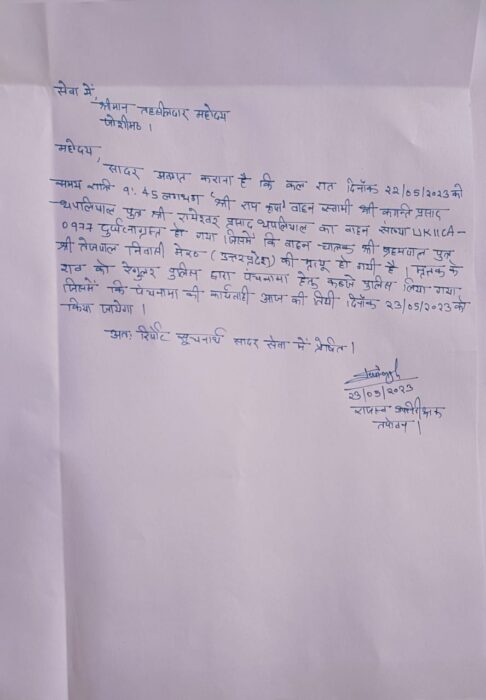 सेवा में,
श्रीमान तहसीलदार महोदय
जोशीमठ ।
महोदय,
सादर अवगत कराना है कि कल रात दिनाँक 22/05/2023 को
समय रात्रि 9:45 लगभग 'श्री राम कृपा' वाहन स्वामी श्री कान्ति प्रसाद
थपलियाल पुत्र श्री रामेश्वर प्रसाद थपलियाल का वाहन संख्या UK11CA-
0977 दुर्घटनाग्रस्त हो गया जिसमें कि वाहन चालक श्री ब्रहमपाल पुत्र
श्री तेजपाल निवासी मेरठ (उत्तरप्रदेश) की मृत्यू हो गयी है । मृतक के
शव को रेगुलर पुलिस द्वारा पंचनामा हेतु कब्जे पुलिस लिया गया
जिसमें कि पंचनामा की कार्यवाही आज की तिथी दिनाँक 23/05/2023 को
किया जायेगा ।
अतः रिपोर्ट सूचनार्थ सादर सेवा में प्रेषित ।
23/05/2023
राजस्व उपनिरीक्षक
तपोवन ।